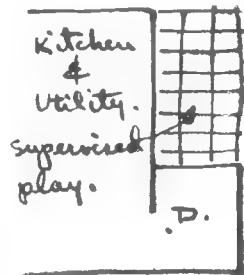 Kitchen
&
Utility.
Supervised
play.
.D.